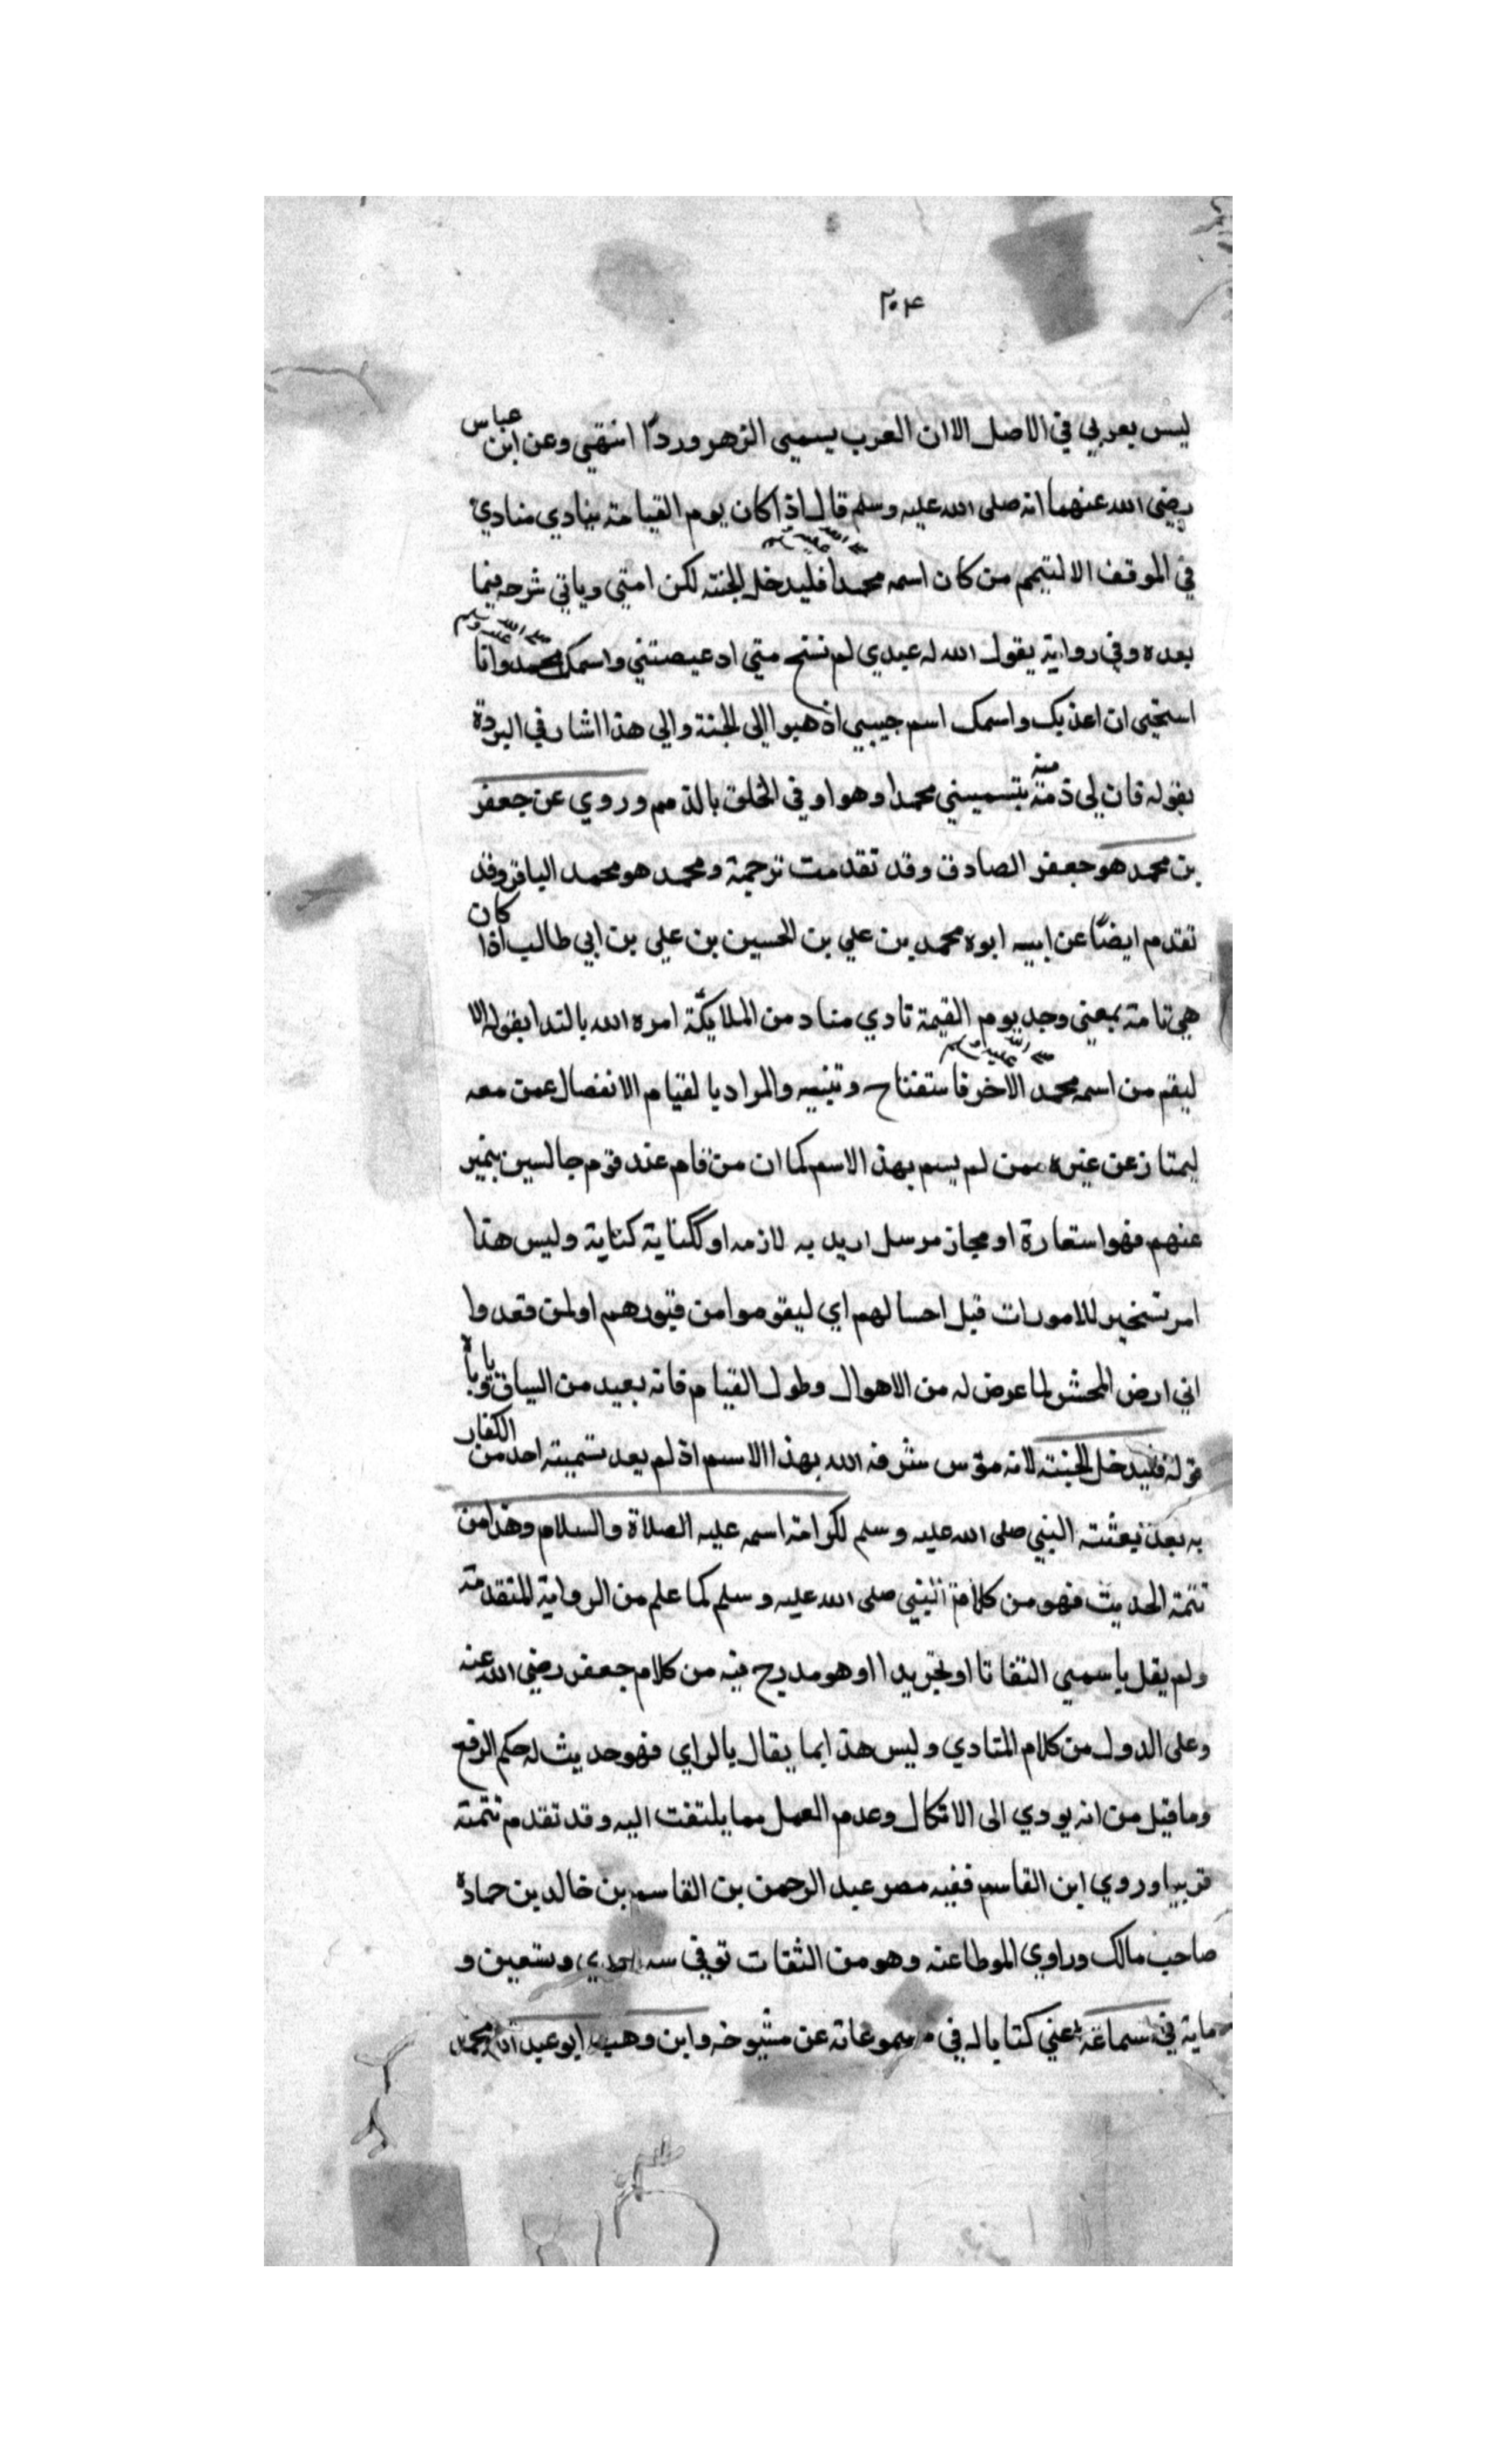 ٢٠٤
ليس بعربي في الاصل الا ان العرب يسمي الزهر وردًا انتهي وعن ابن عباس
رضي الله عنهما انه صلى الله عليه وسلم قال اذا كان يوم القيامة ينادي منادي
في الموقف الا ليقم من كان اسمه محمدا صلى الله عليه وسلم فليدخل الجنة لكن امتي وياتي شرحه فيما
بعده وفي رواية يقول الله له عبدي لم تستح مني اذ عصيتني واسمك محمد صلى الله عليه وسلم وانا
استحيى ان اعذبك واسمك اسم حبيبي اذهبوا الى الجنة والي هذا اشار في البردة
بقوله فان لي ذمة منه بتسميتي محمدا وهو اوفي الخلق بالذمم وروي عن جعفر
بن محمد هو جعفر الصادق وقد تقدمت ترجمة ومحمد هو محمد الباقر وقد
تقدم ايضًا عن ابيه ابوه محمد بن علي بن الحسين بن علي بن ابي طالب اذا كان
هي تامة بمعني وجد يوم القيمة نادي مناد من الملايكة امره الله بالندا بقوله الا
ليقم من اسمه محمد صلى الله عليه وسلم الاخر فاستفتاح وتنبيه والمراد بالقيام الانفصال عمن معه
ليمتاز عن غيره ممن لم يسم بهذ الاسم كما ان من قام عند قوم جالسين بتميز
عنهم فهو استعارة او مجاز مرسل اريد به لازمه او ككناية كناية وليس هذا
امر تسخير للاموات قبل احسالهم اي ليقوموا من قبورهم او لمن قعدوا
اني ارض المحشر لما عرض له من الاهوال وطول القيام فانه بعيد من السياق وياباه
قوله فليدخل الجنة لانه مؤمن شرفه الله بهذا الاسم اذ لم يعد تسميته احد من الكفار
به بعد بعثته النبي صلى الله عليه وسلم لكرامة اسمه عليه الصلاة والسلام وهذا من
تتمة الحديث فهو من كلام النبي صلى الله عليه وسلم كما علم من الرواية المتقدمة
ولم يقل باسمي التفاتا او تجريدا او هو مدرج فيه من كلام جعفر رضي الله عنه
وعلى الدول من كلام المنادي وليس هذا مما يقال بالراي فهو حديث له حكم الرفع
وما قيل من انه يودي الى الاتكال وعدم العمل مما يلتفت اليه وقد تقدم تتمته
قريبا وروي ابن القاسم فقيه مصر عبد الرحمن بن القاسم بن خالد بن حمادة
صاحب مالك وراوي الموطا عنه وهو من الثقات توفي سنه احدي وتسعين و
ماية في سماعه يعني كتابا له في مسموعاته عن مشيوخه وابن وهب ابو عبد الله محمد